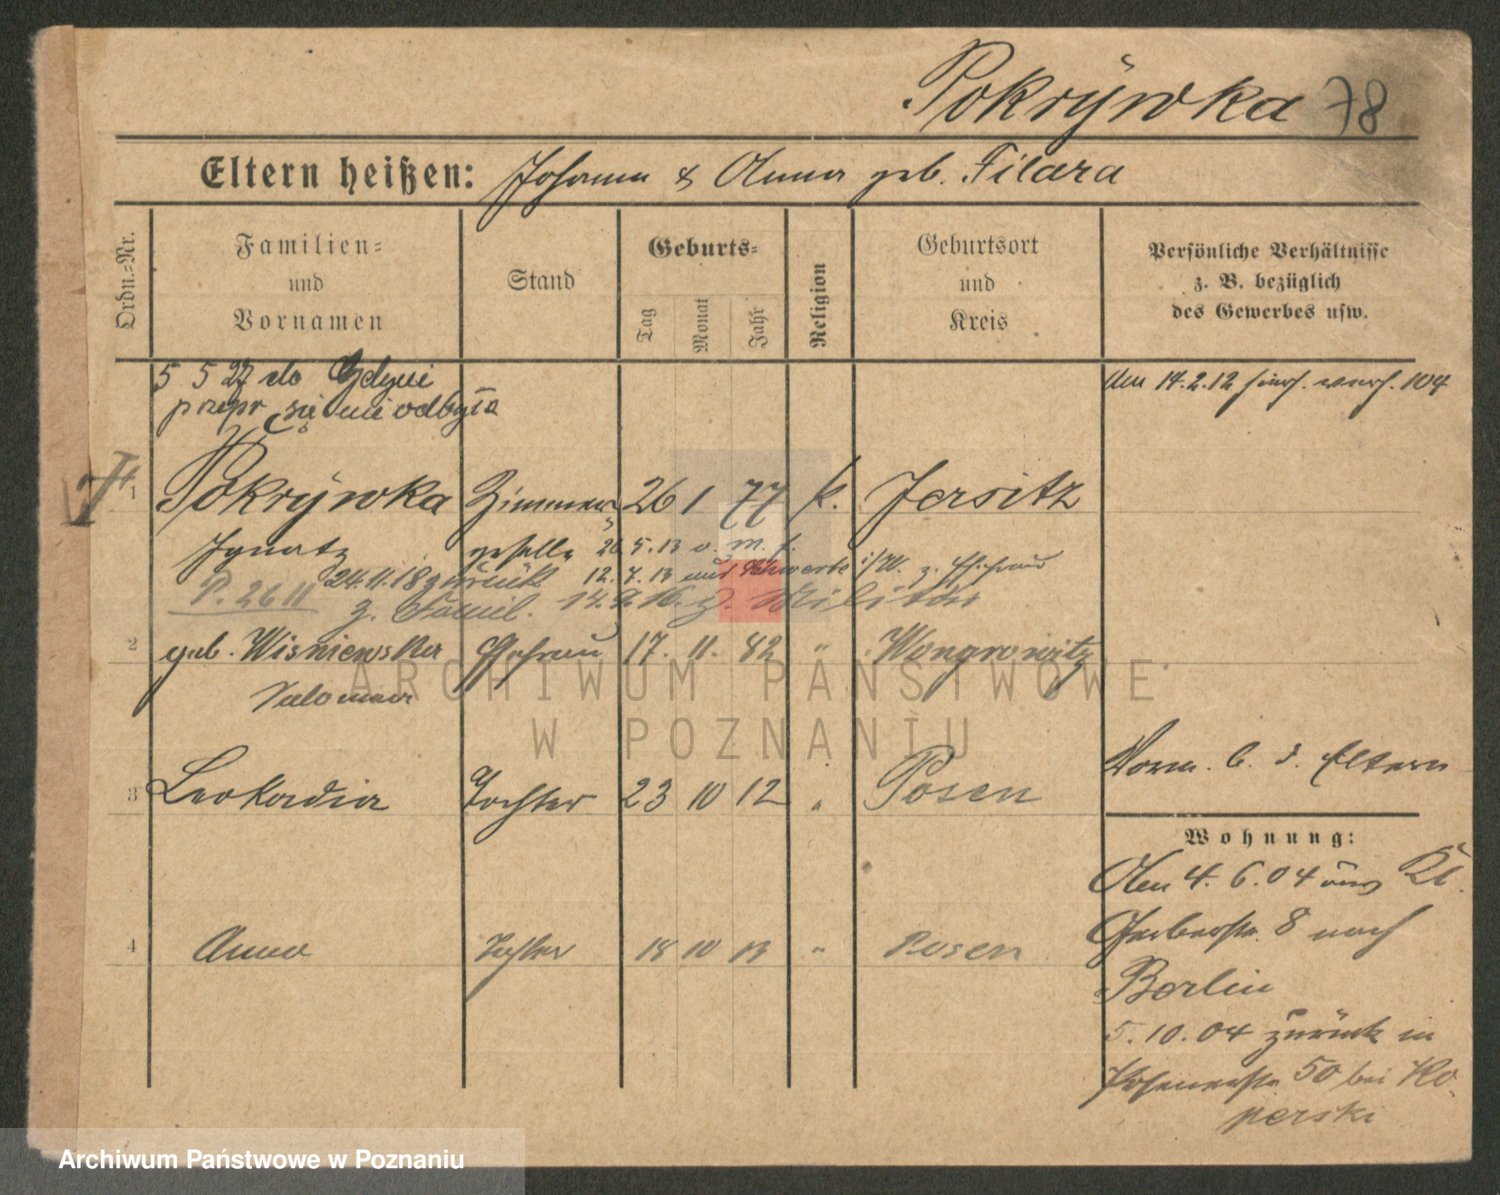 Pokrÿwka 78
Eltern heißen: Johann & Anna geb. Filara
Ordn.=Nr.
Familien=
und
Vornamen
Stand
Geburts=
Tag
Monat
Jahr
Religion
Geburtsort
und
Kreis
Persönliche Verhältnisse
z. B. bezüglich
des Gewerbes usw.
5 5 27 do Gdyni
przepr się nie odbyła
Am 14.2.12 verh. 104
1 Pokrÿwka Zimmer 26 1 77 k. Jersitz
Ignatz geselle 26.5.13 v. M. f.
P. 26 11 24.11.18 zurück 12.7.13 aus Schwerte i/W. z. Ehefrau
z. Famil. 14.9.16. z. Militär
2 geb. Wisniewska Ehefrau 17. 11. 82 " Wongrowitz
Salomea
3 Leokadia Tochter 23 10 12 " Posen
Vorm. b. d. Eltern
Wohnung:
Den 4. 6. 04 aus Kl.
Gerberstr. 8 nach
Berlin
4 Anna Tochter 18 10 13 " Posen
5. 10. 04 zurück in
Posenerstr. 50 bei Ko
perski
ARCHIWUM PAŃSTWOWE
W POZNANIU
Archiwum Państwowe w Poznaniu